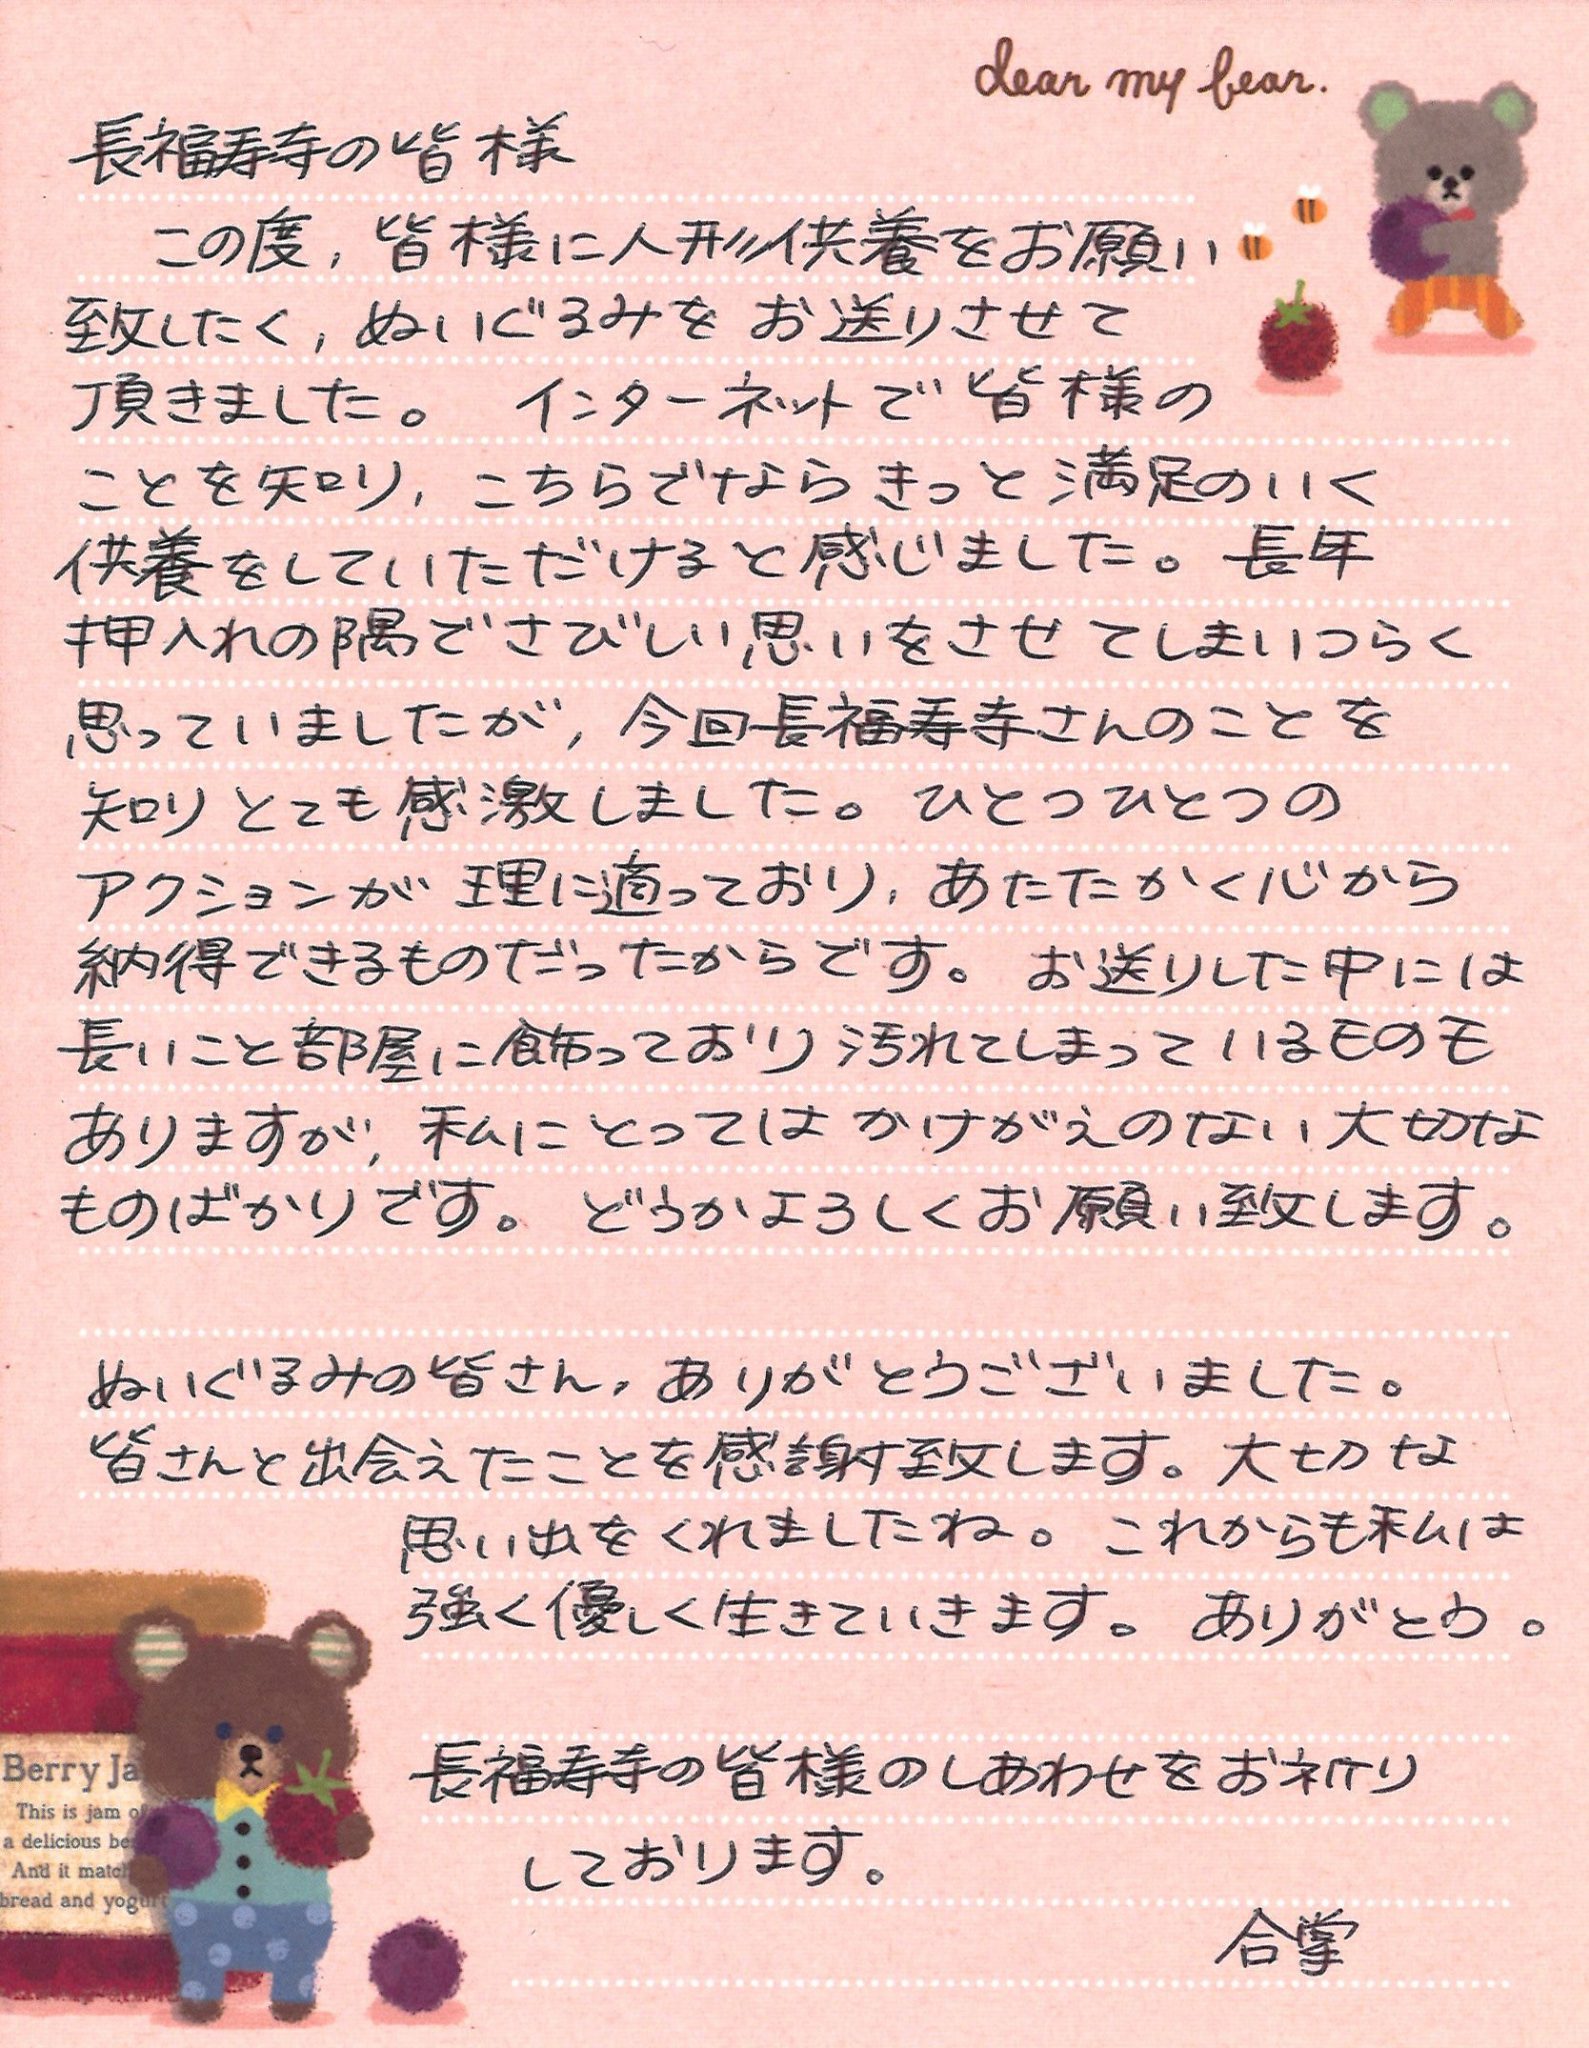 dear my bear.
長福寿寺の皆様
この度,皆様に人形供養をお願い
致したく,ぬいぐるみをお送りさせて
頂きました。 インターネットで皆様の
ことを知り,こちらでならきっと満足のいく
供養をしていただけると感じました。長年
押入れの隅でさびしい思いをさせてしまいつらく
思っていましたが,今回長福寿寺さんのことを
知りとても感激しました。ひとつひとつの
アクションが理に適っており,あたたかく心から
納得できるものだったからです。お送りした中には
長いこと部屋に飾っており汚れてしまっているものも
ありますが,私にとってはかけがえのない大切な
ものばかりです。どうかよろしくお願い致します。
ぬいぐるみの皆さん,ありがとうございました。
皆さんと出会えたことを感謝致します。大切な
思い出をくれましたね。これからも私は
強く優しく生きていきます。ありがとう。
長福寿寺の皆様のしあわせをお祈り
しております。
合掌
Berry Ja
This is jam of
a delicious be
And it match
bread and yogurt